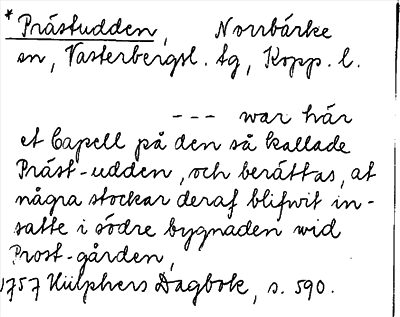 * Prästudden, Norrbärke
sn, Västerbergsl. tg, Kopp. l.
--- war här
et Capell på den så kallade
Präst-udden, och berättas, at
några stockar deraf blifwit in-
satte i södre bygnaden wid
Prost-gården,
1757 Hülphers Dagbok, s. 590.